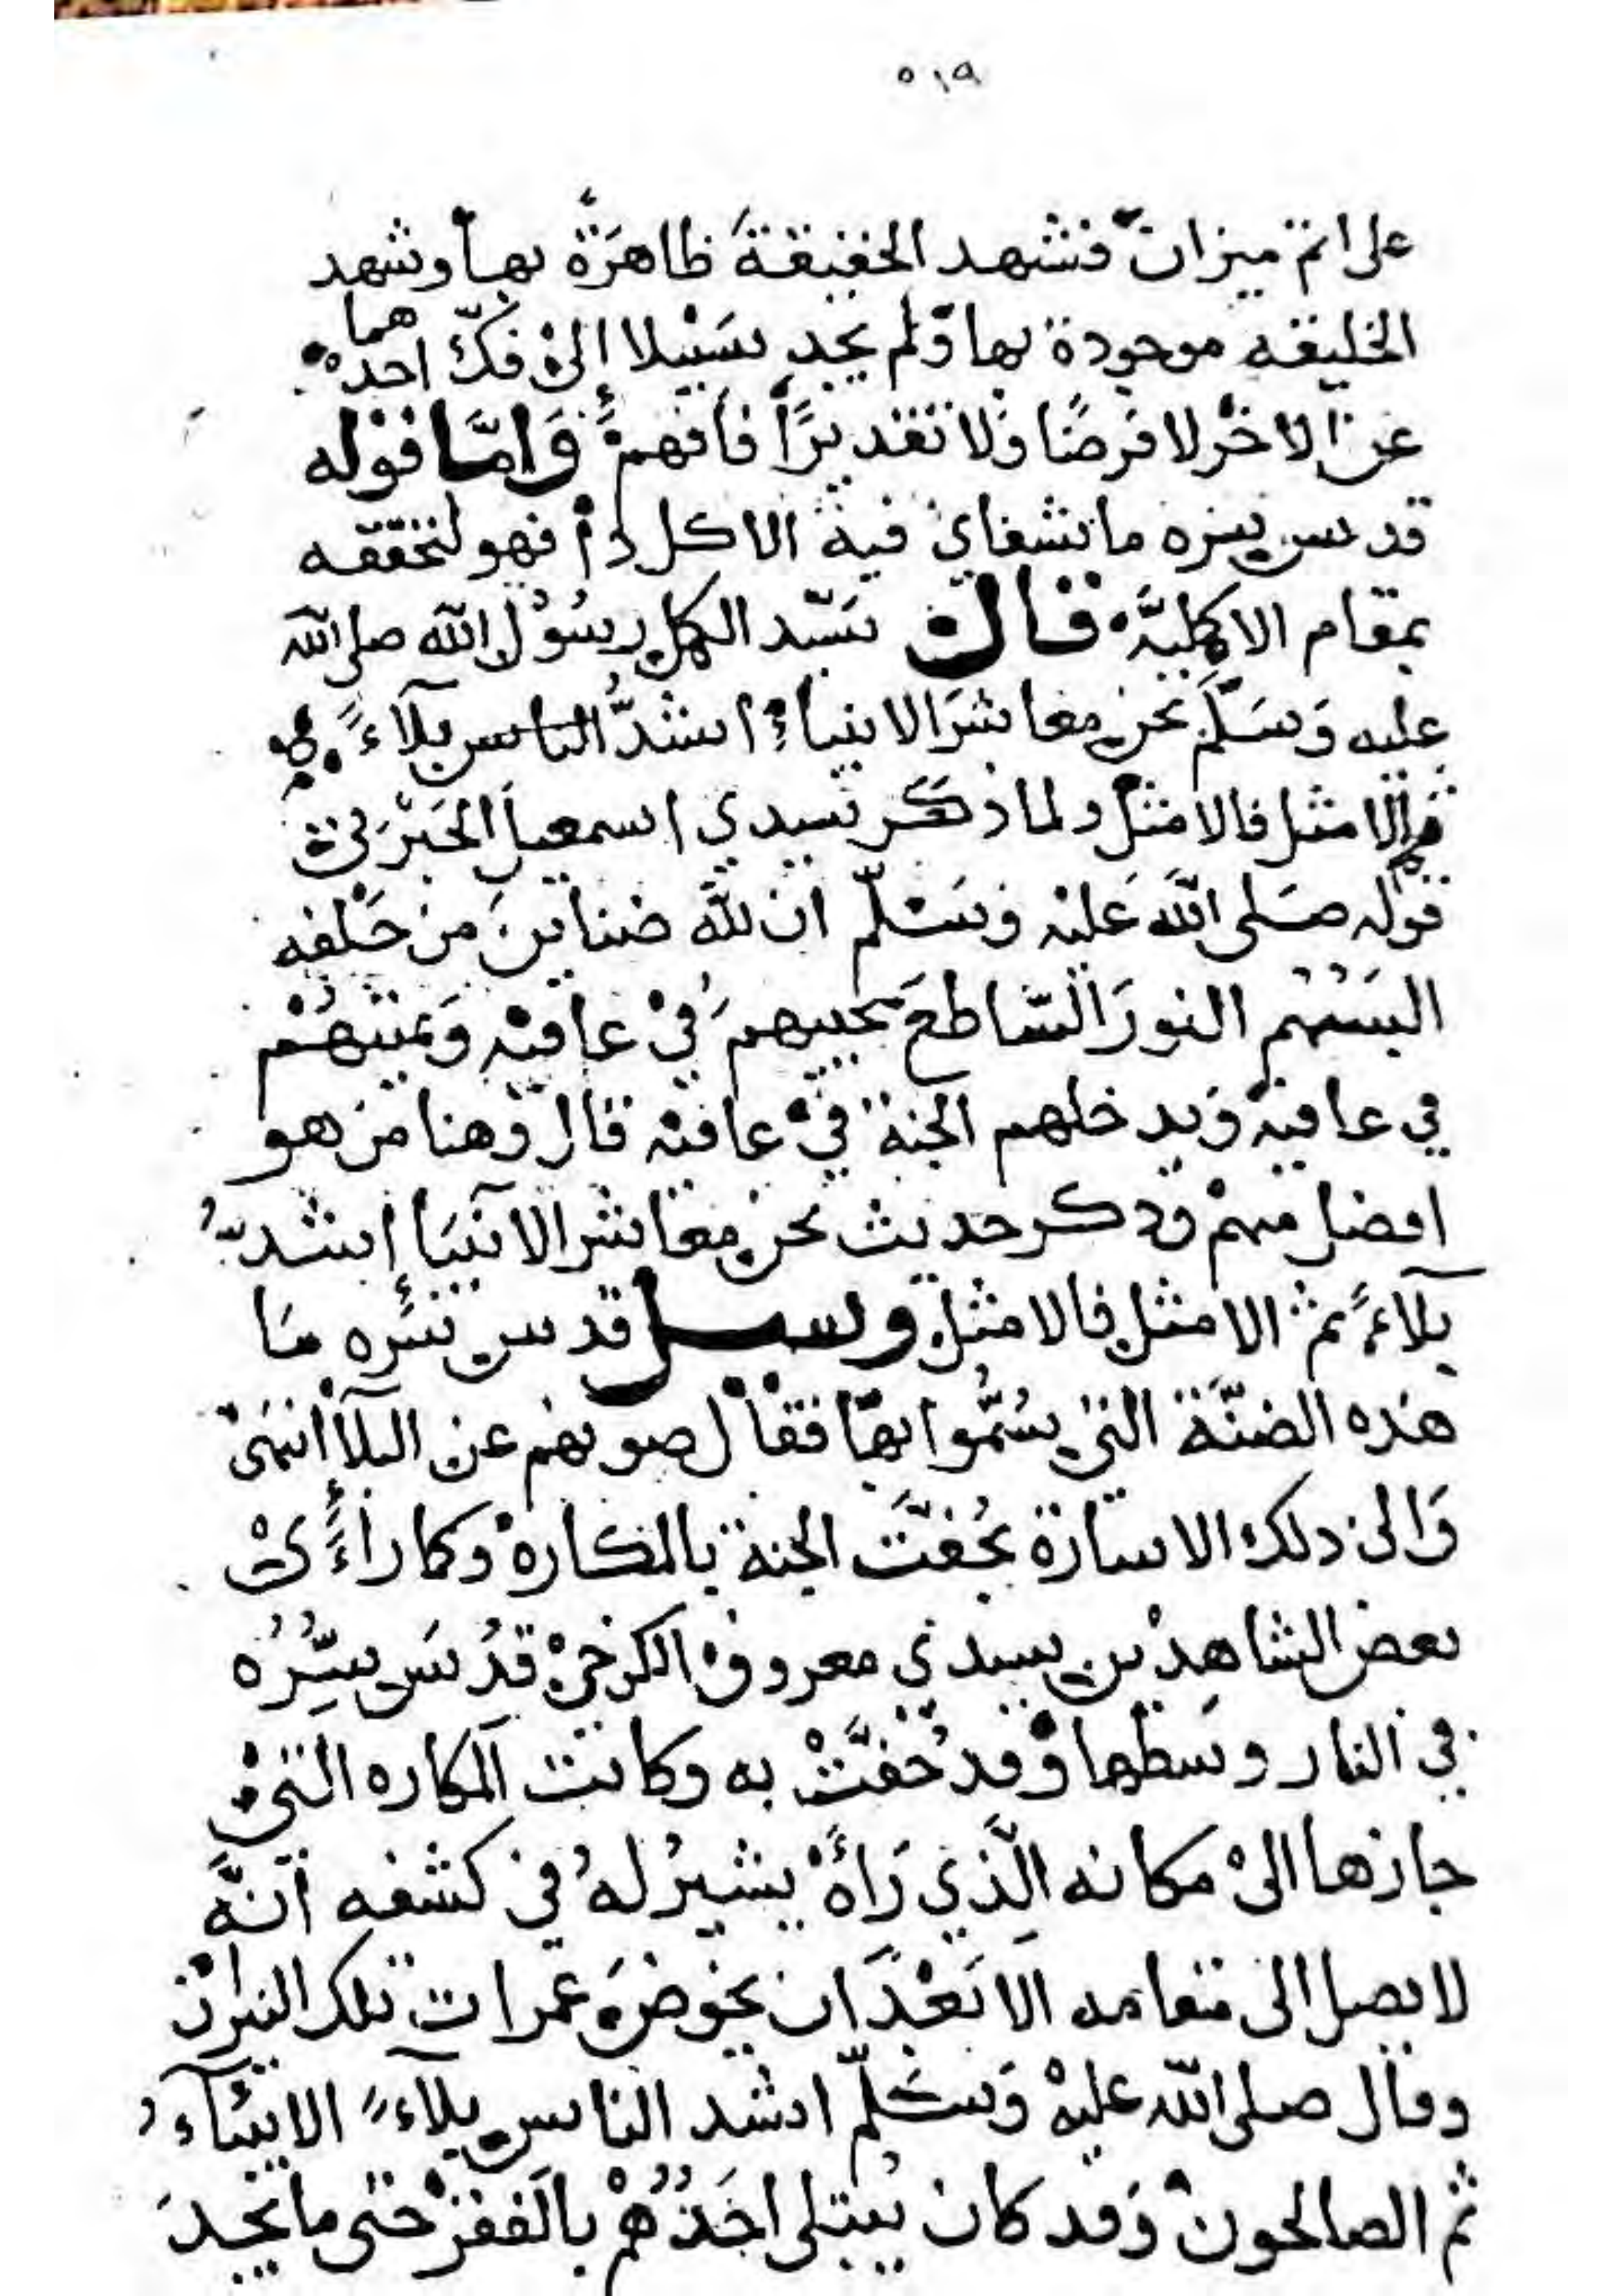 ٥١٩
على اتم ميزان فشهد الحقيقة ظاهرة بها وشهد
الخليقه موجودة بها ولم يجد سبيلا إلى فك احدهما
عن الاخر لا فرضا ولا تقديرا فافهم واما قوله
قدس سره ما نشفاني فيه الاكل دم فهو لتحققه
بمقام الاكملية قال سيد الكل رسول الله صلى الله
عليه وسلم نحن معاشر الانبياء اشد الناس بلاء
ثم الامثل فالامثل ولما ذكر سيدي اسمعيل الجبرتي
قوله صلى الله عليه وسلم ان لله ضناين من خلقه
البسهم النور الساطع يحييهم في عافية ويميتهم
في عافية ويدخلهم الجنة في عافية قال وهنا من هو
افضل منهم وذكر حديث نحن معاشر الانبيا اشد
بلاء ثم الامثل فالامثل وسيل قدس سره ما
هذه الضنة التي سموا بها فقال صونهم عن البلا انتهى
والى ذلك الاسارة بحفت الجنة بالمكاره وكما راءى
بعض الشاهدين سيدي معروف الكرخي قدس سره
في النار وسطها وقد حفت به وكانت المكاره التي
جازها الى مكانه الذي راه يشير له في كشفه انه
لا يصل الى مقامه الا بعد ان يخوض غمرات تلك النيران
وقال صلى الله عليه وسلم اشد الناس بلاء الانبياء
ثم الصالحون وقد كان يبتلى احدهم بالفقر حتى ما يجد